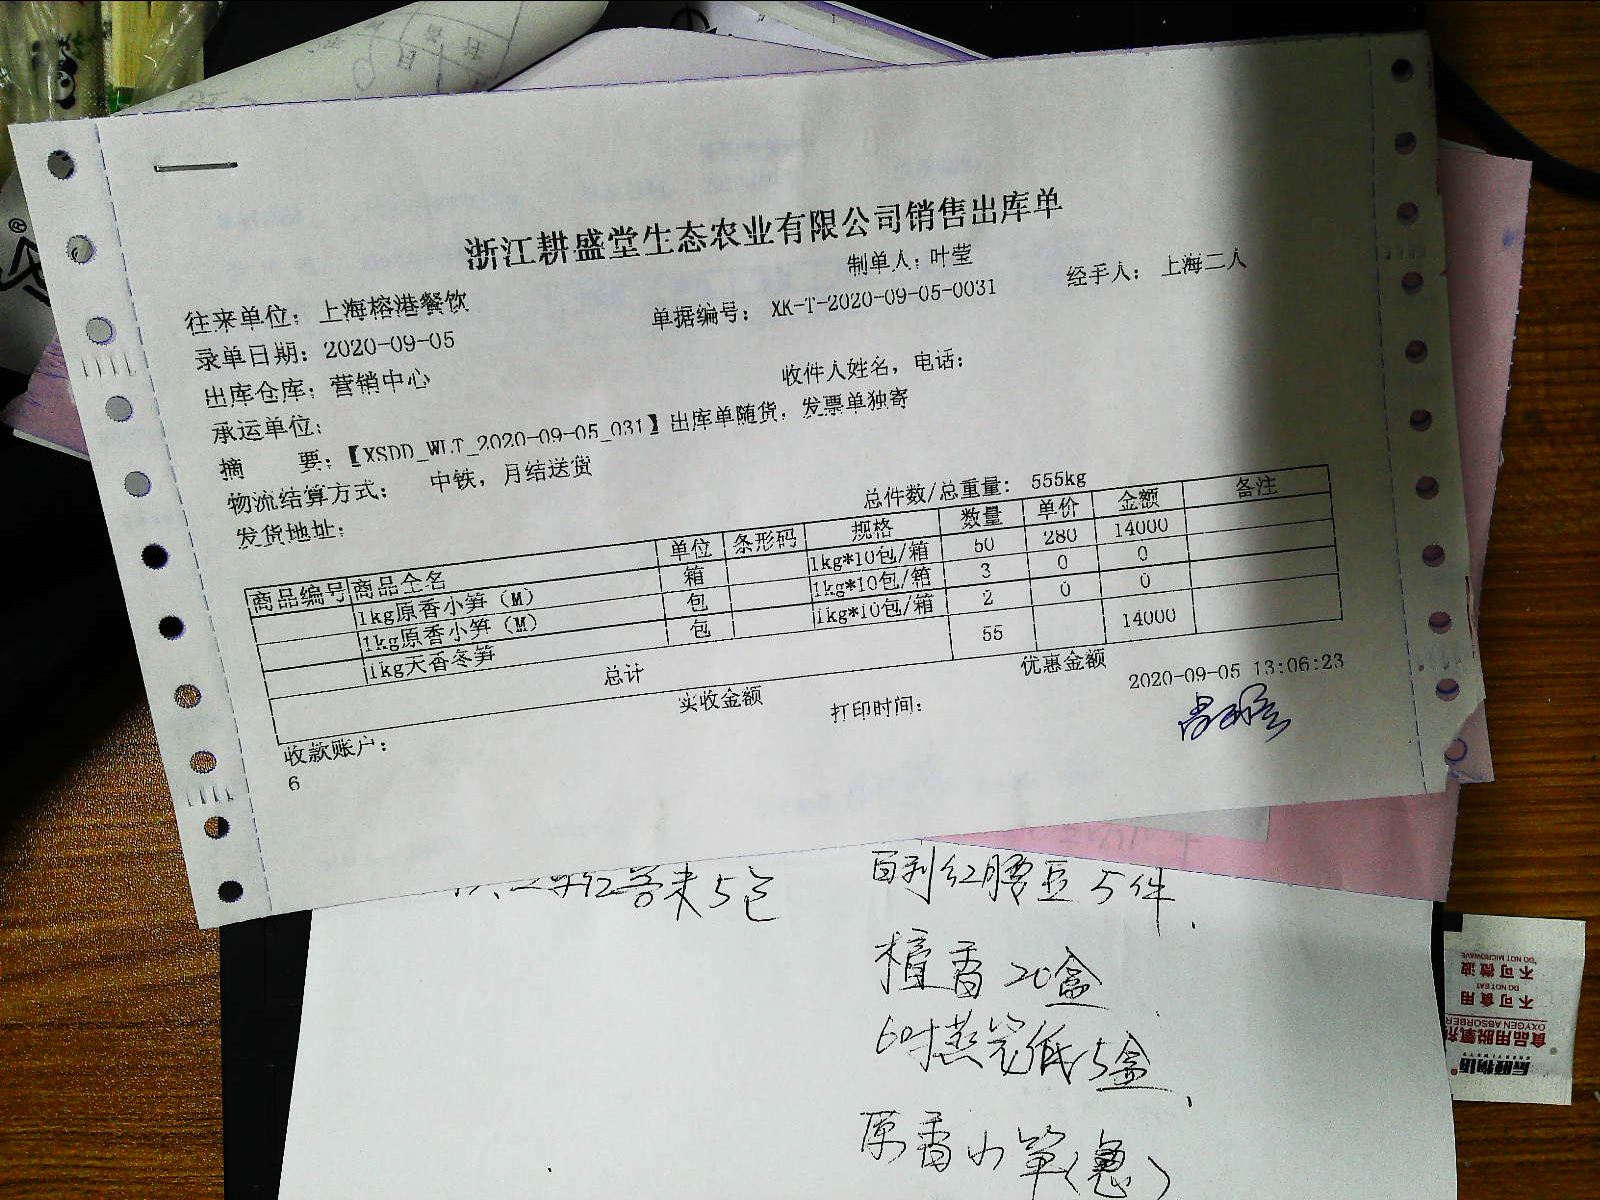 浙江耕盛堂生态农业有限公司销售出库单
制单人：叶莹
往来单位：上海榕港餐饮 单据编号： XK-T-2020-09-05-0031 经手人： 上海二人
录单日期：2020-09-05
出库仓库：营销中心 收件人姓名，电话：
承运单位：
摘 要：【XSDD_WLT_2020-09-05_031】出库单随货，发票单独寄
物流结算方式： 中铁，月结送货
发货地址： 总件数/总重量： 555kg
商品编号 商品全名 单位 条形码 规格 数量 单价 金额 备注
1kg原香小笋（M） 箱 1kg*10包/箱 50 280 14000
1kg原香小笋（M） 包 1kg*10包/箱 3 0 0
1kg天香冬笋 包 1kg*10包/箱 2 0 0
总计 55 14000
实收金额 优惠金额
收款账户： 打印时间： 2020-09-05 13:06:23
6
5包
百利红腰豆5件
檀香20盒
6吋蒸笼纸15盒
原香小笋(急)
不可微波
DO NOT MICROWAVE
不可食用
DO NOT EAT
OXYGEN ABSORBER
食品用脱氧剂